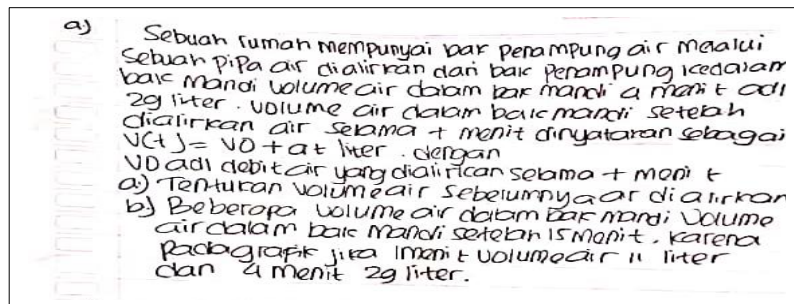 a) Sebuah rumah mempunyai bak penampung air melalui
sebuah pipa air dialirkan dari bak penampung kedalam
bak mandi volume air dalam bak mandi 4 menit adl
29 liter. volume air dalam bak mandi setelah
dialirkan air selama t menit dinyatakan sebagai
V(t) = VO + at liter. dengan
VO adl debit air yang dialirkan selama t menit
a) Tentukan volume air sebelumnya air dialirkan
b) Beberapa volume air dalam bak mandi Volume
air dalam bak mandi setelah 15 menit. Karena
pada grafik jika 1 menit volume air 11 liter
dan 4 menit 29 liter.